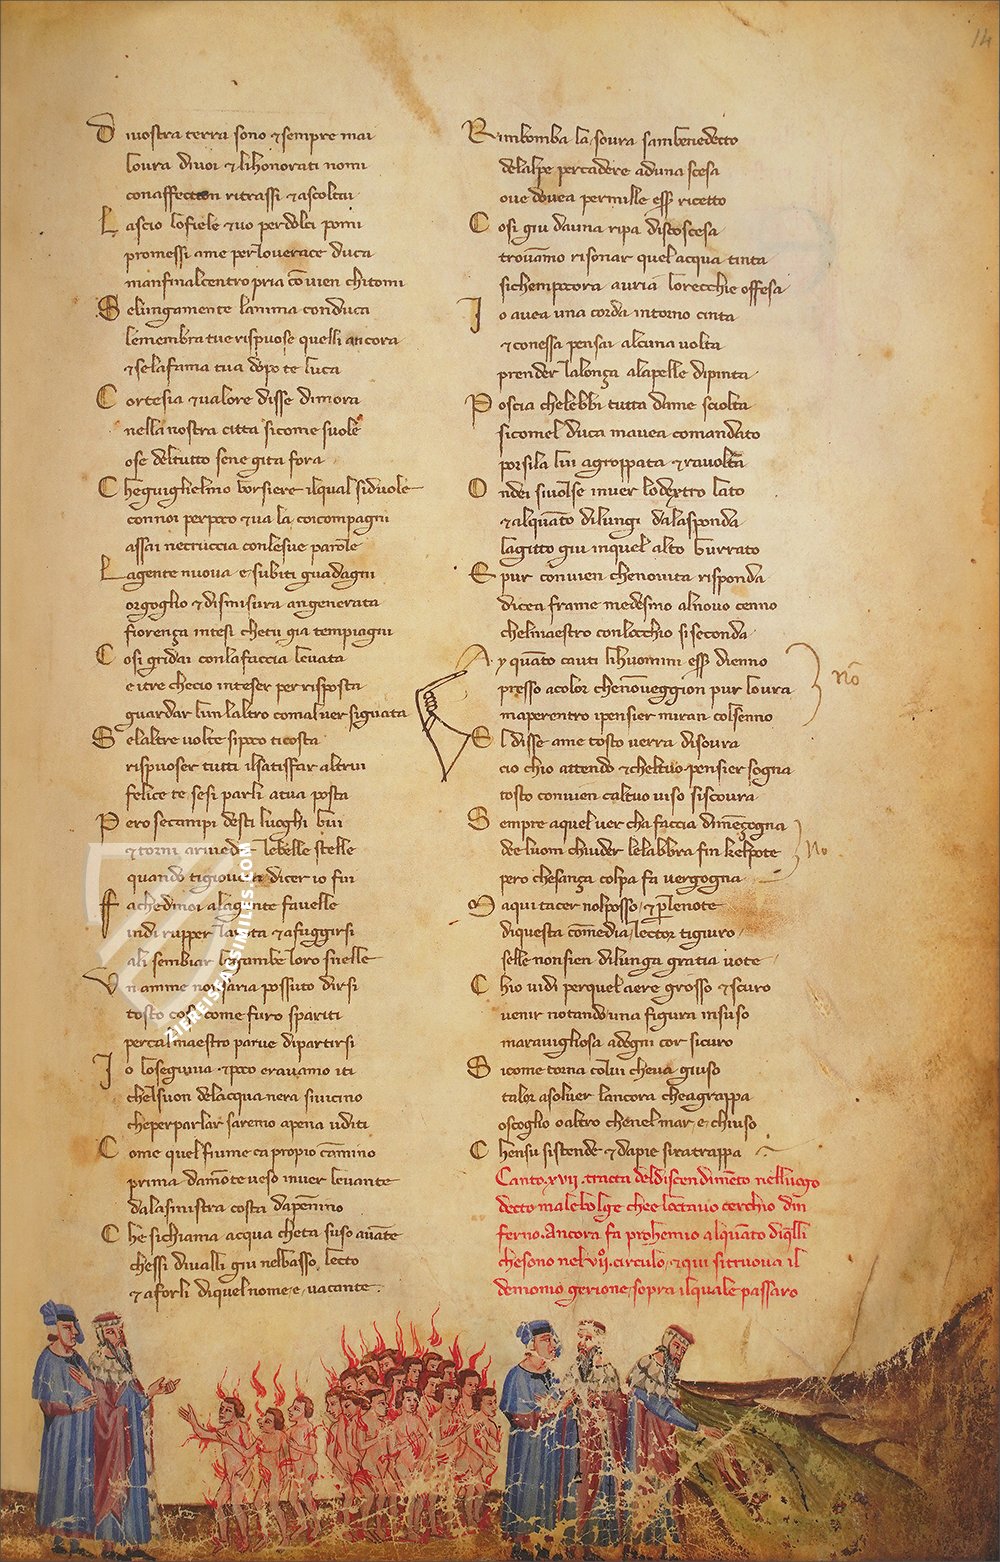 14
D i uostra terra sono ⁊ sempre mai
loura diuoi ⁊ lihonorati nomi
conaffection ritrassi ⁊ ascoltai
L ascio lofiele ⁊ uo perdolci pomi
promessi ame perlouerace duca
manfinalcentro pria cōuien chitomi
S elungamente lanima conduca
lemembra tue rispuose quelli ancora
⁊ selafama tua dopo te luca
C ortesia ⁊ ualore disse dimora
nella nostra citta sicome suole
ose deltutto sene gita fora
C heguiglielmo borsiere ilqual siduole
connoi perpoco ⁊ ua la coicompagni
assai necruccia conlesue parole
L agente nuoua e subiti guadagni
orgoglio ⁊ dismisura angenerata
fiorença intesi chetu gia tempiagni
C osi gridai conlafaccia leuata
e itre checio inteser per risposta
guardar lun laltro comaluer siguata
S elaltre uolte sipoco ticosta
rispuoser tutti ilsatisfar altrui
felice te sesi parli atua posta
P ero secampi desti luoghi bui
⁊ torni ariueder lebelle stelle
quando tigiouera dicer io fui
F a chedinoi alagente fauelle
indi rupper larota ⁊ afuggirsi
ali sembiar legambe loro snelle
V n amme nonsaria possuto dirsi
tosto cosi come furo spariti
percalmaestro parue dipartirsi
I o loseguiua ⁊ poco erauamo iti
chelsuon delacqua nera siuicino
cheperparlar saremo apena uditi
C ome quel fiume ca propio cāmino
prima damōte ueso inuer leuante
dalasinistra costa dapēnino
C he sichiama acqua cheta suso auāte
chessi diualli giu nelbasso lecto
⁊ aforli diquel nome e uacante
R imbomba la soura sambenedecto
delalpe percadere aduna scesa
oue douea permille esser ricetto
C osi giu dauna ripa discoscesa
trouāmo risonar quel acqua tinta
sichempocora auria lorecchie offesa
I o auea una corda intorno cinta
⁊ conessa pensai alcuna uolta
prender lalonça alapelle dipinta
P oscia chelebbi tutta dame sciolta
sicomel duca mauea comandato
porsila lui agroppata ⁊ rauolta
O ndei siuolse inuer lodextro lato
⁊ alquāto dilungi dalasponda
lagitto giu inquel alto burrato
E pur conuien chenouita risponda
dicea frame medesmo alnouo cenno
chelmaestro conlocchio siseconda
A y quāto cauti lihuomini esser dienno
presso acolor chenōueggion pur loura
maperentro ipensier miran colsenno
nō
E l disse ame tosto uerra disoura
cio chio attendo ⁊ cheltuo pensier sogna
tosto conuien caltuo uiso siscoura
S empre aquel uer cha faccia dimēçogna
dee luom chiuder lelabbra fin kelpote
pero chesança colpa fa uergogna
No
M aqui tacer nolposso ⁊ perlenote
diquesta comedia lector tigiuro
selle nonsien dilunga gratia uote
C hio uidi perquel aere grosso ⁊ scuro
uenir notando una figura insuso
marauigliosa adogni cor sicuro
S icome torna colui cheua giuso
talor asoluer lancora cheagrappa
oscoglio o altro chenel mar e chiuso
C hensu sistende ⁊ dapie siratrappa
Canto .xvii. tracta deldiscendimēto nelluogo
decto malebolge chee loctauo cerchio din
ferno. Ancora fa prohemio alquāto diquelli
chesono nel .vii°. circulo. ⁊ qui sitruoua il
demonio gerione sopra ilquale passaro
ZIEREISFACSIMILES.COM